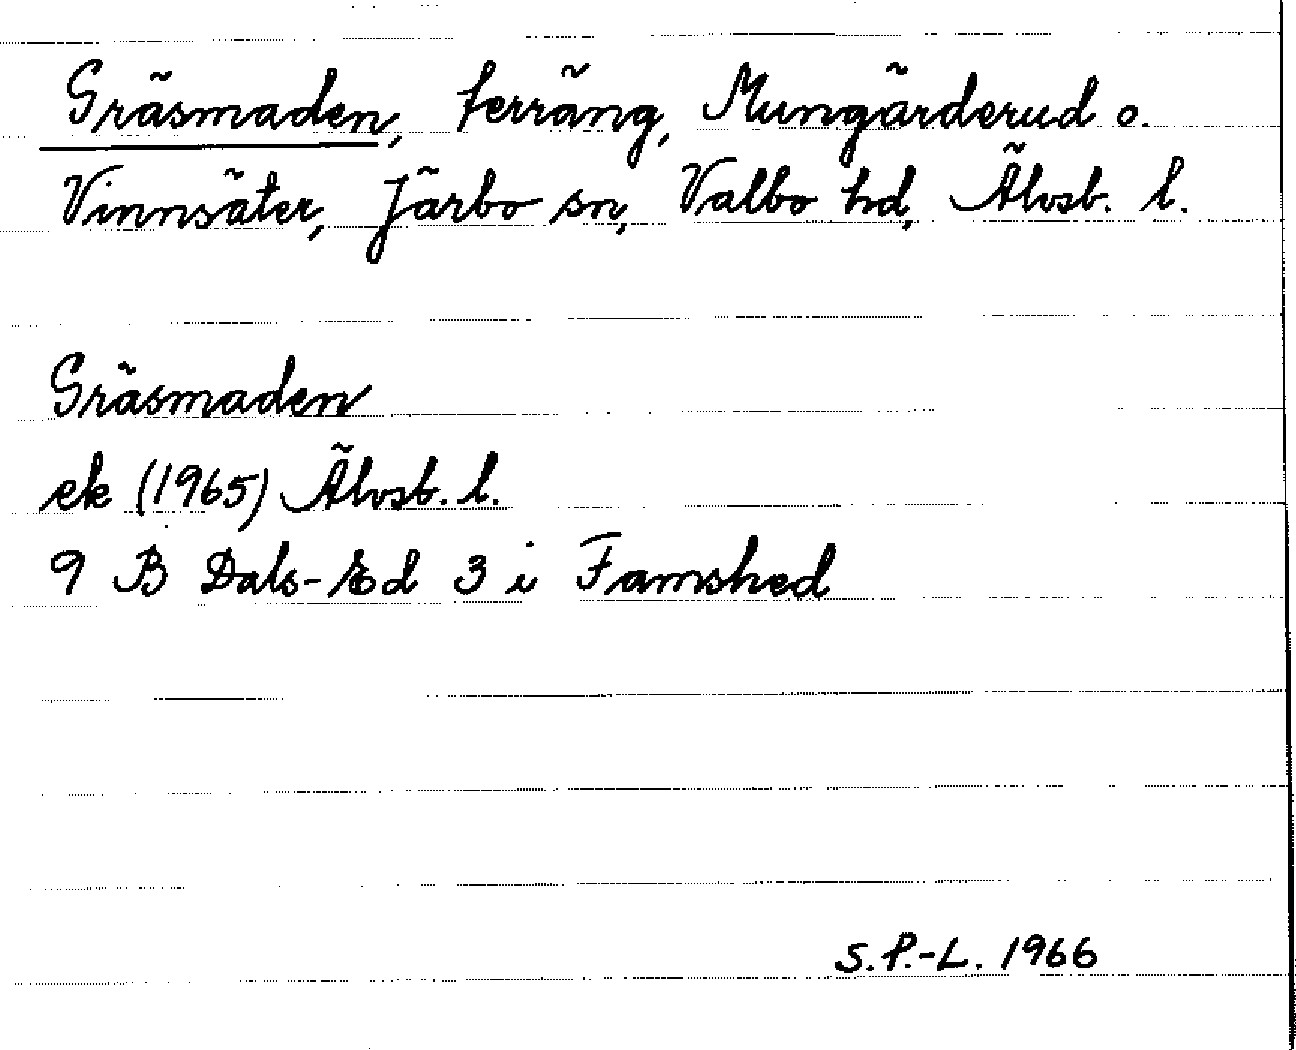 Gräsmaden, terräng, Mungärderud o.
Vinnsäter, Järbo sn, Valbo hd, Älvsb. l.
Gräsmaden
ek (1965) Älvsb. l.
9 B Dals-Ed 3 i Famshed
S.P.-L. 1966